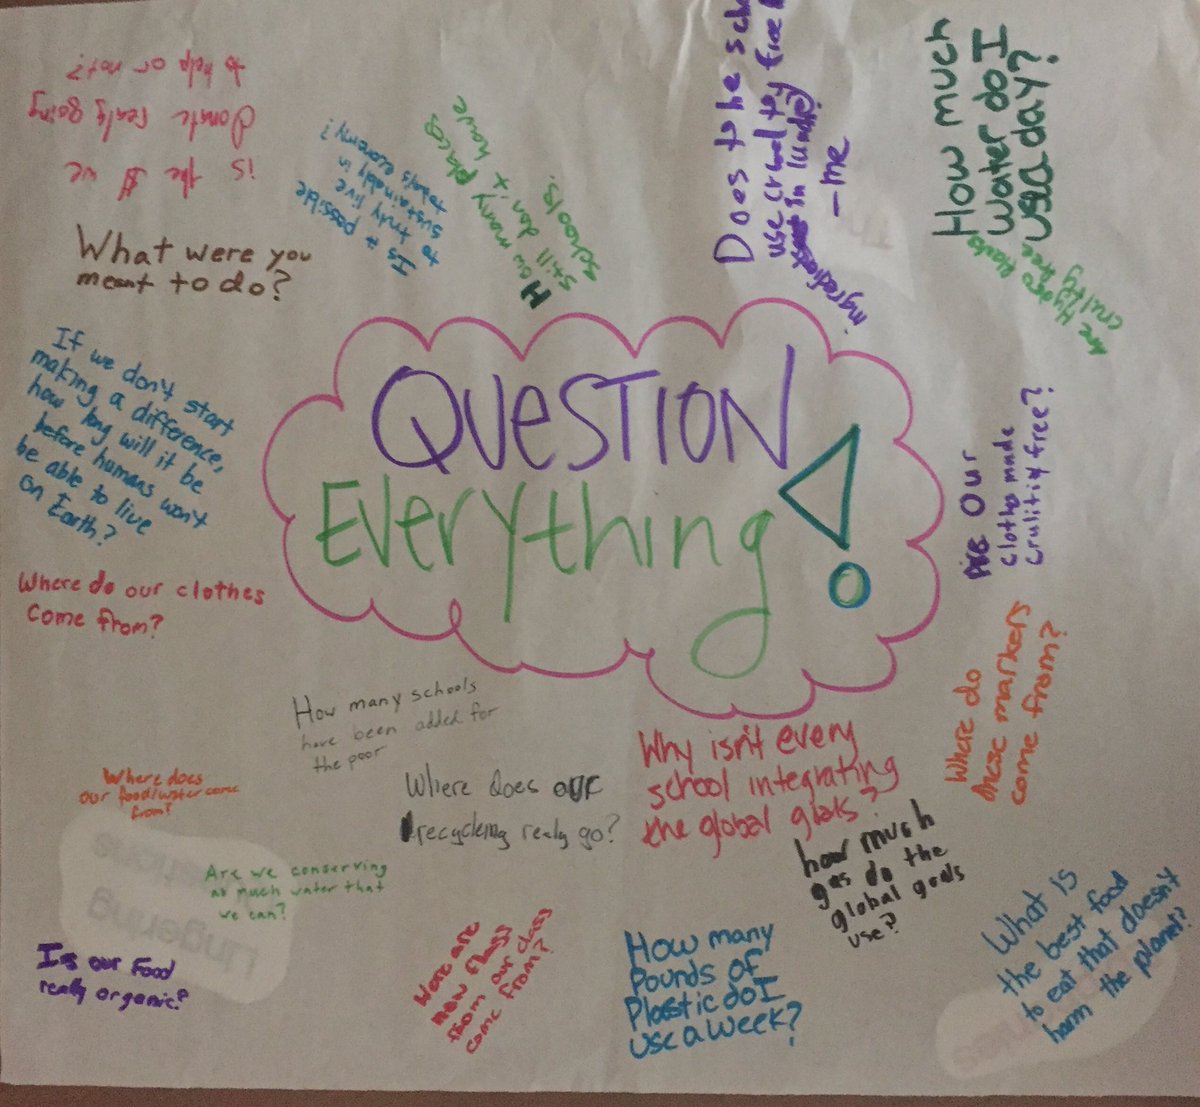 QUESTION
Everything!
is the $ we
Donate realy going
to help or not?
Is it possible
to truly live
sustainably in
today's economy?
How many places
still don't have
schools.
Does to be sch
use crual ty free
in lundry
ingradiat
- me
How much
water do I
use a day?
Are Hydro Planks
crulty free
What were you
meant to do?
If we don't start
making a difference,
how long will it be
before humans won't
be able to live
on Earth?
Are Our
Clothes made
crulitiy free?
Where do our clothes
come from?
Where do
these markers
come from?
How many schools
have been added for
the poor
Where does
our food/water come
from?
Where does our
recycleing realy go?
Why isn't every
school integrating
the global goals?
how much
gas do the
global goals
use?
Are we conserving
as much water that
we can?
Is our food
really organic?
Were are
new flags
from our class
come from?
How many
pounds of
Plastic do I
use a week?
What is
the best food
to eat that doesn't
harm the planet?